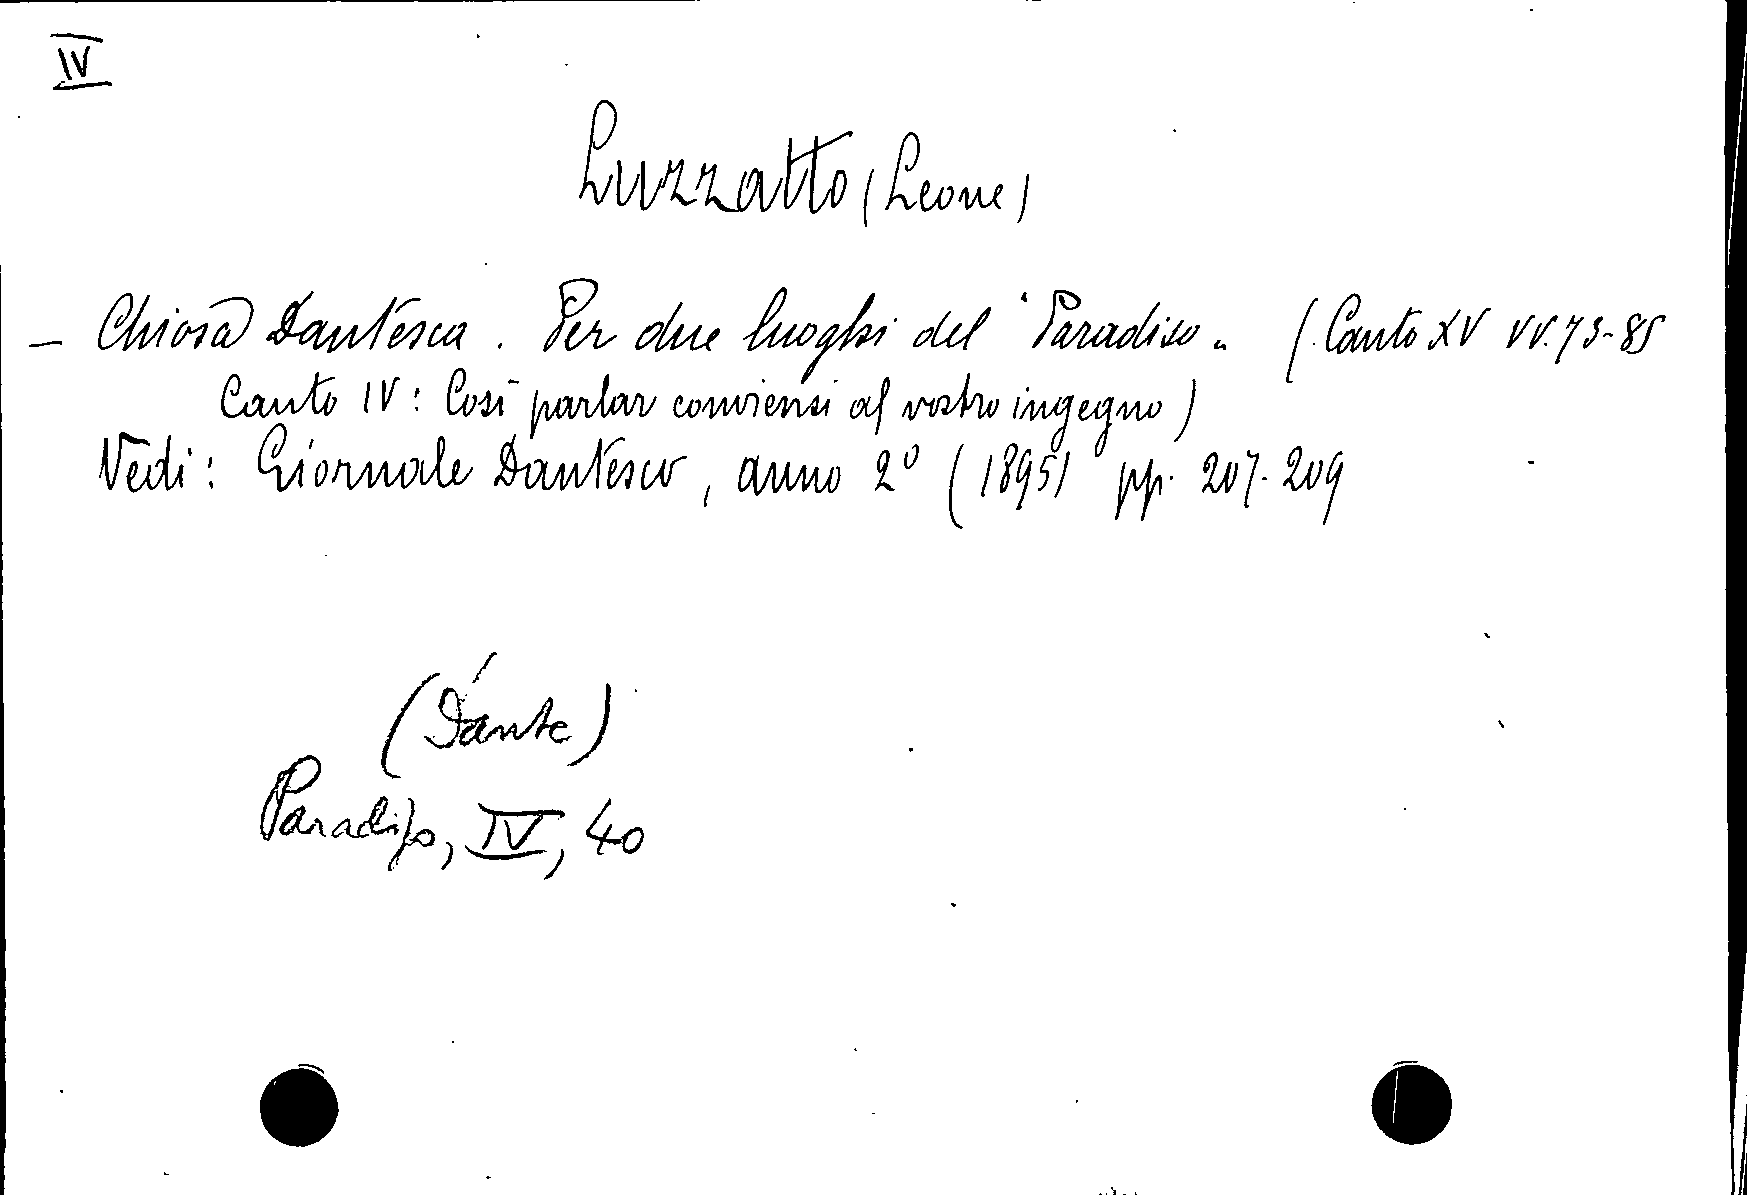 IV
Luzzatto (Leone)
— Chiosa Dantesca. Per due luoghi del "Paradiso„ (Canto XV vv. 73-85
Canto IV: Così parlar conviensi al vostro ingegno)
Vedi: Giornale Dantesco, anno 2º (1895) pp. 207-209
(Dante)
Paradiso, IV, 40